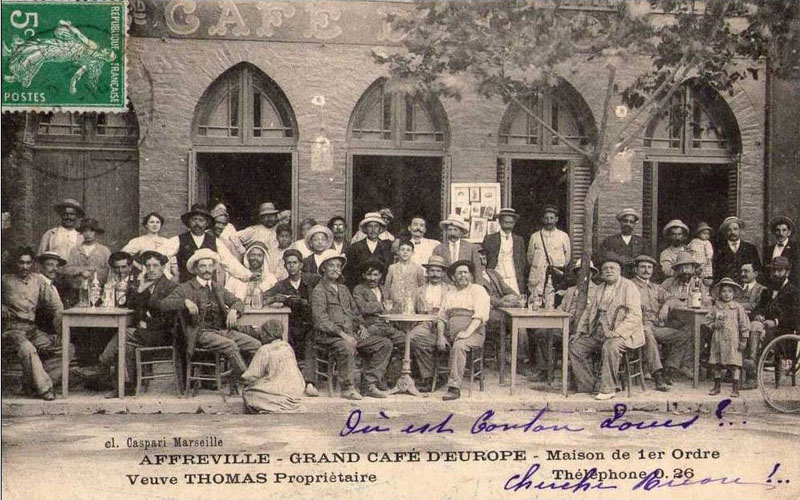 5c
RÉPUBLIQUE FRANÇAISE
POSTES
CAFÉ
Où est Tonton Louis !?..
cl. Caspari Marseille
AFFREVILLE - GRAND CAFÉ D'EUROPE - Maison de 1er Ordre
Veuve THOMAS Propriètaire Thélèphone 0.26
cherche bien !..